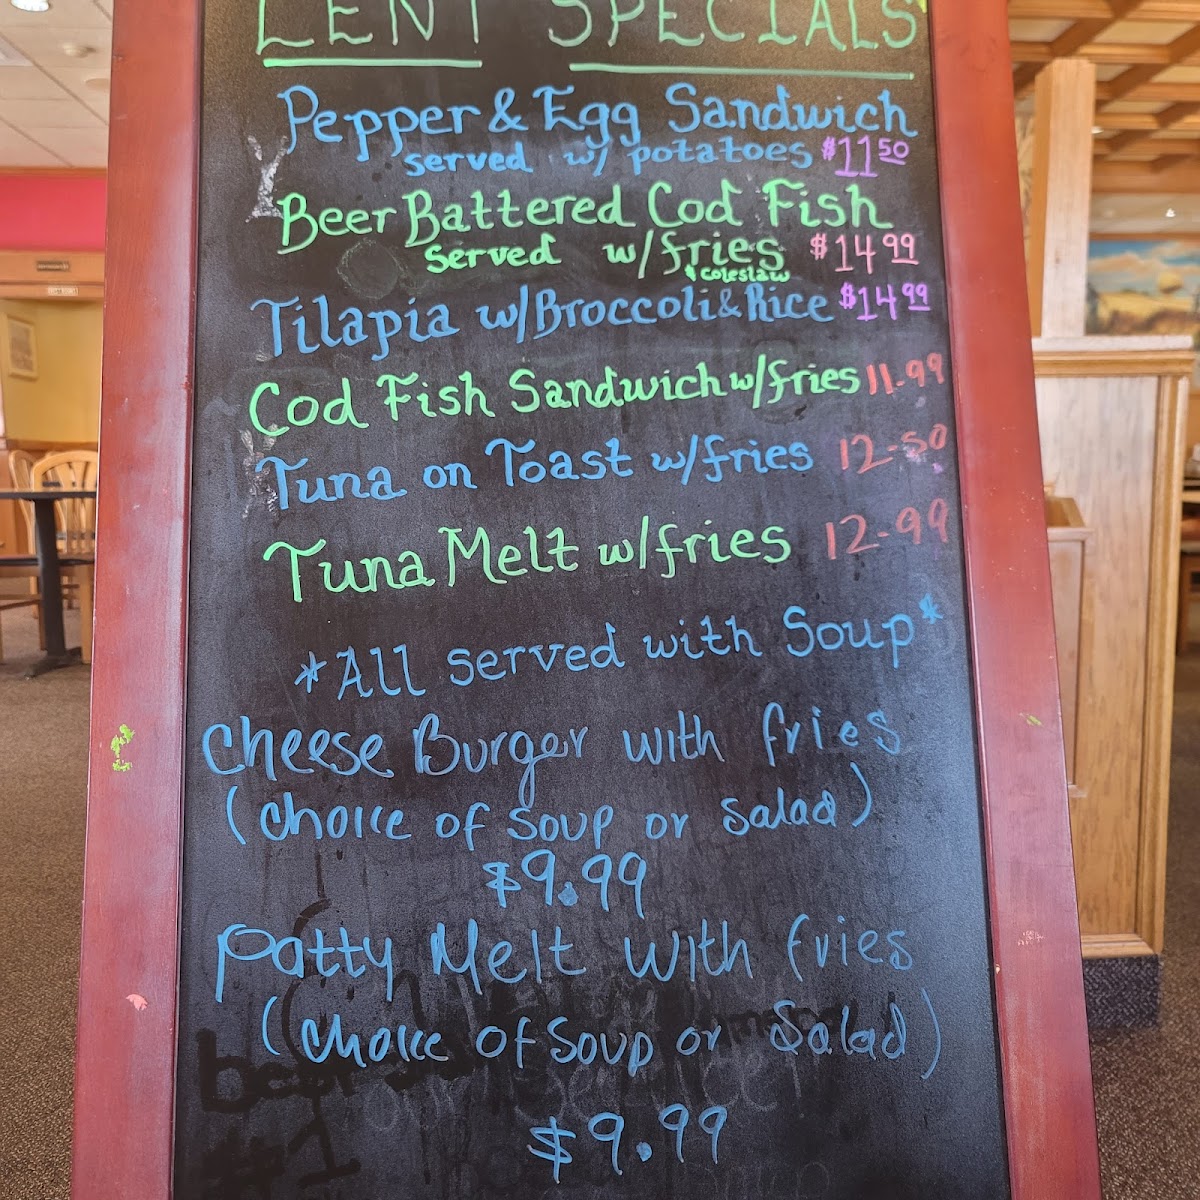 LENT SPECIALS
Pepper & Egg Sandwich
served w/ potatoes $11.50
Beer Battered Cod Fish
served w/fries $14.99
& coleslaw
Tilapia w/Broccoli & Rice $14.99
Cod Fish Sandwich w/fries 11-99
Tuna on Toast w/fries 12-50
Tuna Melt w/fries 12-99
*All served with Soup*
Cheese Burger with fries
(Choice of Soup or Salad)
$9.99
Patty Melt with fries
(Choice of Soup or Salad)
$9.99